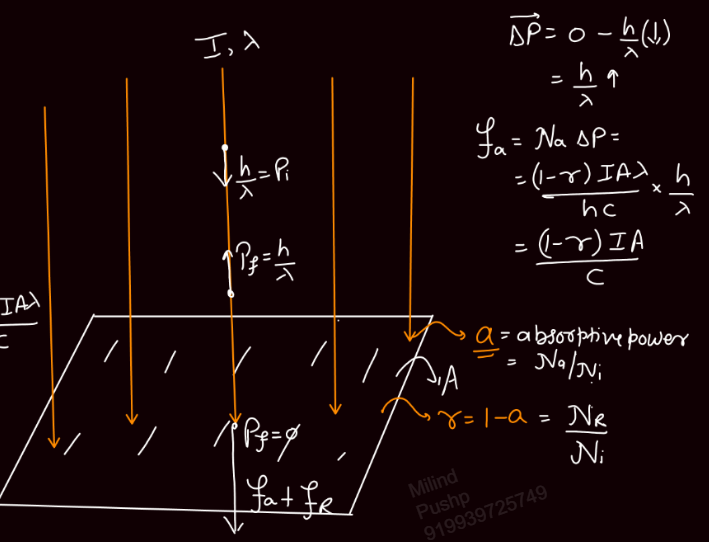 I, λ
h/λ = Pi
Pf = h/λ
IAλ
c
Pf = 0
fa + fR
A
ΔP = 0 - h/λ (↓)
= h/λ ↑
fa = Na ΔP =
= (1-r) IAλ / hc × h/λ
= (1-r) IA / c
a = absorptive power
= Na/Ni
r = 1-a = NR/Ni
Milind
Pushp
919939725749